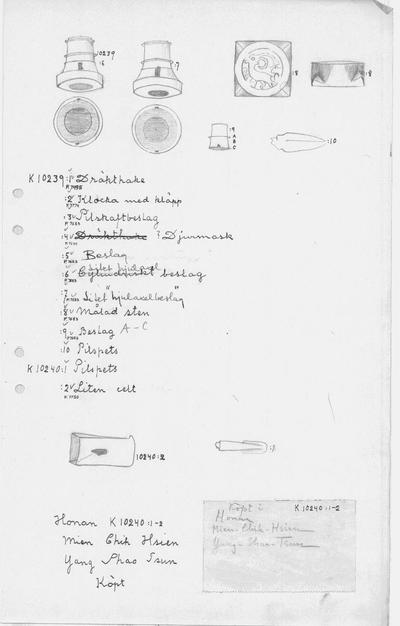 10239
:6
:7
:8
:8
:9
A
B
C
:10
K 10239:1 Dräkthake
:2 Klocka med kläpp
:3 Pilskaftbeslag
:4 Dräkthake ? Djurmask
:5 Beslag
Litet hjulaxel
:6 Cylindriskt beslag
:7 Litet "hjulaxelbeslag"
:8 Målad sten
:9 Beslag A-C
:10 Pilspets
K 10240:1 Pilspets
:2 Liten celt
10240:2
:1
Honan K 10240:1-2
Mien Chih Hsien
Yang Shao Tsun
Köpt
Köpt i K 10240:1-2
Honan
Mien-Chih-Hsien
Yang-Shao-Tsun